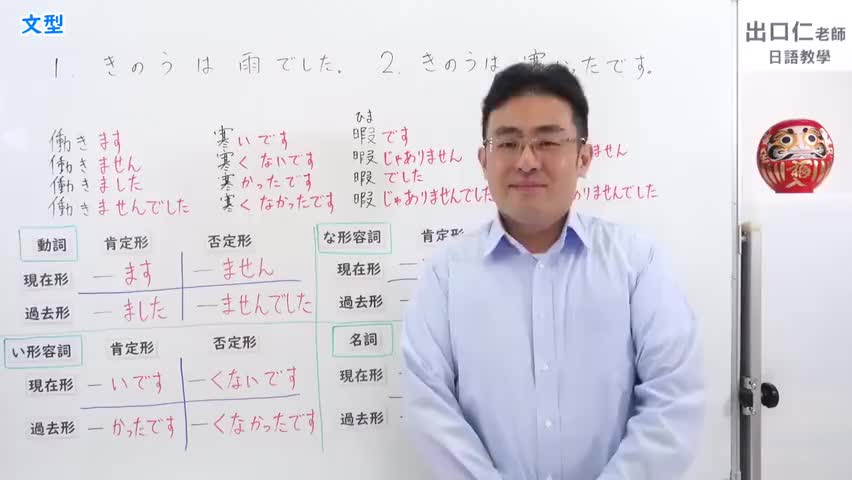 文型
出口仁老師
日語教學
1. きのうは雨でした。 2. きのうは寒かったです。
ひま
働きます 寒いです 暇です
働きません 寒くないです 暇じゃありません ません
働きました 寒かったです 暇でした
働きませんでした 寒くなかったです 暇じゃありませんでした ありませんでした
動詞 肯定形 否定形
現在形 ―ます ―ません
過去形 ―ました ―ませんでした
な形容詞 肯定形
現在形
過去形
い形容詞 肯定形 否定形
現在形 ―いです ―くないです
過去形 ―かったです ―くなかったです
名詞
現在形
過去形